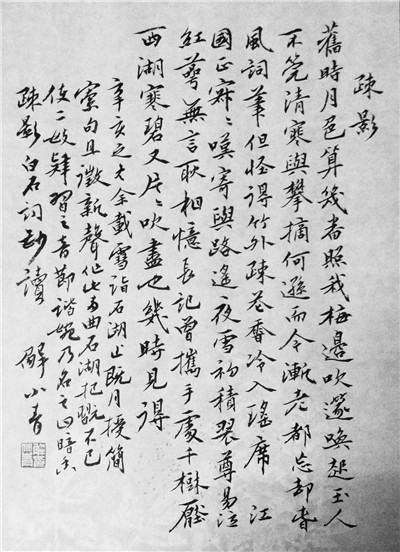 疎影
舊時月色算幾番照我梅邊吹篴喚起玉人
不管清寒與攀摘何遜而今漸老都忘却春
風詞筆但怪得竹外疎花香冷入瑤席 江
國正寂〻嘆寄與路遙夜雪初積翠尊易泣
紅萼無言耿相憶長記曾攜手處千樹壓
西湖寒碧又片〻吹盡也幾時見得
辛亥之冬余載雪詣石湖止既月授簡
索句且徵新聲作此兩曲石湖把翫不已
使二妓肄習之音節諧婉乃名之曰暗香
疎影 白石詞鈔讀 解小青